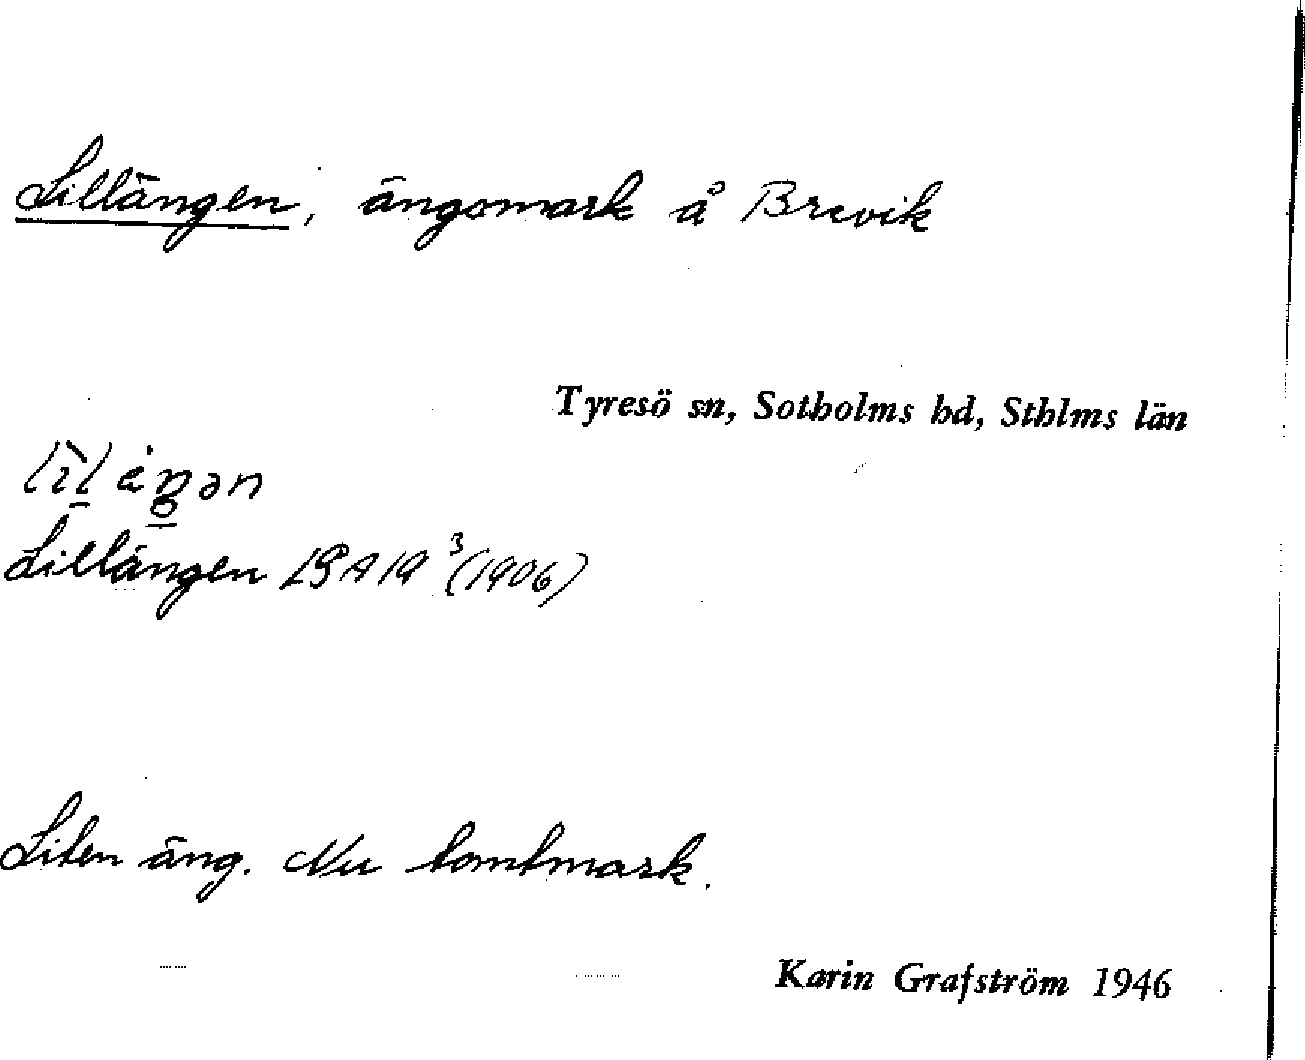 Lillängen, ängsmark å Brevik
Tyresö sn, Sotholms hd, Sthlms län
Lillängen LSA 19³ (1906)
Liten äng. Nu tomtmark.
Karin Grafström 1946